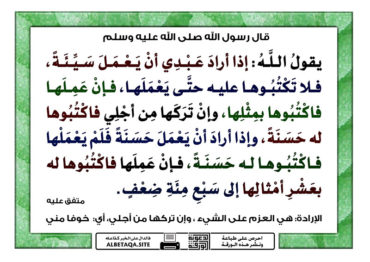 قال رسول الله صلى الله عليه وسلم
يقولُ اللَّهُ: إذا أرادَ عَبْدِي أنْ يَعْمَلَ سَيِّئَةً،
فلا تَكْتُبُوها عليه حتَّى يَعْمَلَها، فإنْ عَمِلَها
فاكْتُبُوها بمِثْلِها، وإنْ تَرَكَها مِن أجْلِي فاكْتُبُوها
له حَسَنَةً، وإذا أرادَ أنْ يَعْمَلَ حَسَنَةً فَلَمْ يَعْمَلْها
فاكْتُبُوها له حَسَنَةً، فإنْ عَمِلَها فاكْتُبُوها له
بعَشْرِ أمْثالِها إلى سَبْعِ مِئَةِ ضِعْفٍ.
متفق عليه
الإرادة: هي العزم على الشيء ، وإن تركها من أجلي، أي: خوفا مني
احرص على طباعة
ونشر هذه الورقة
فالدال على الخير كفاعله
ALBETAQA.SITE